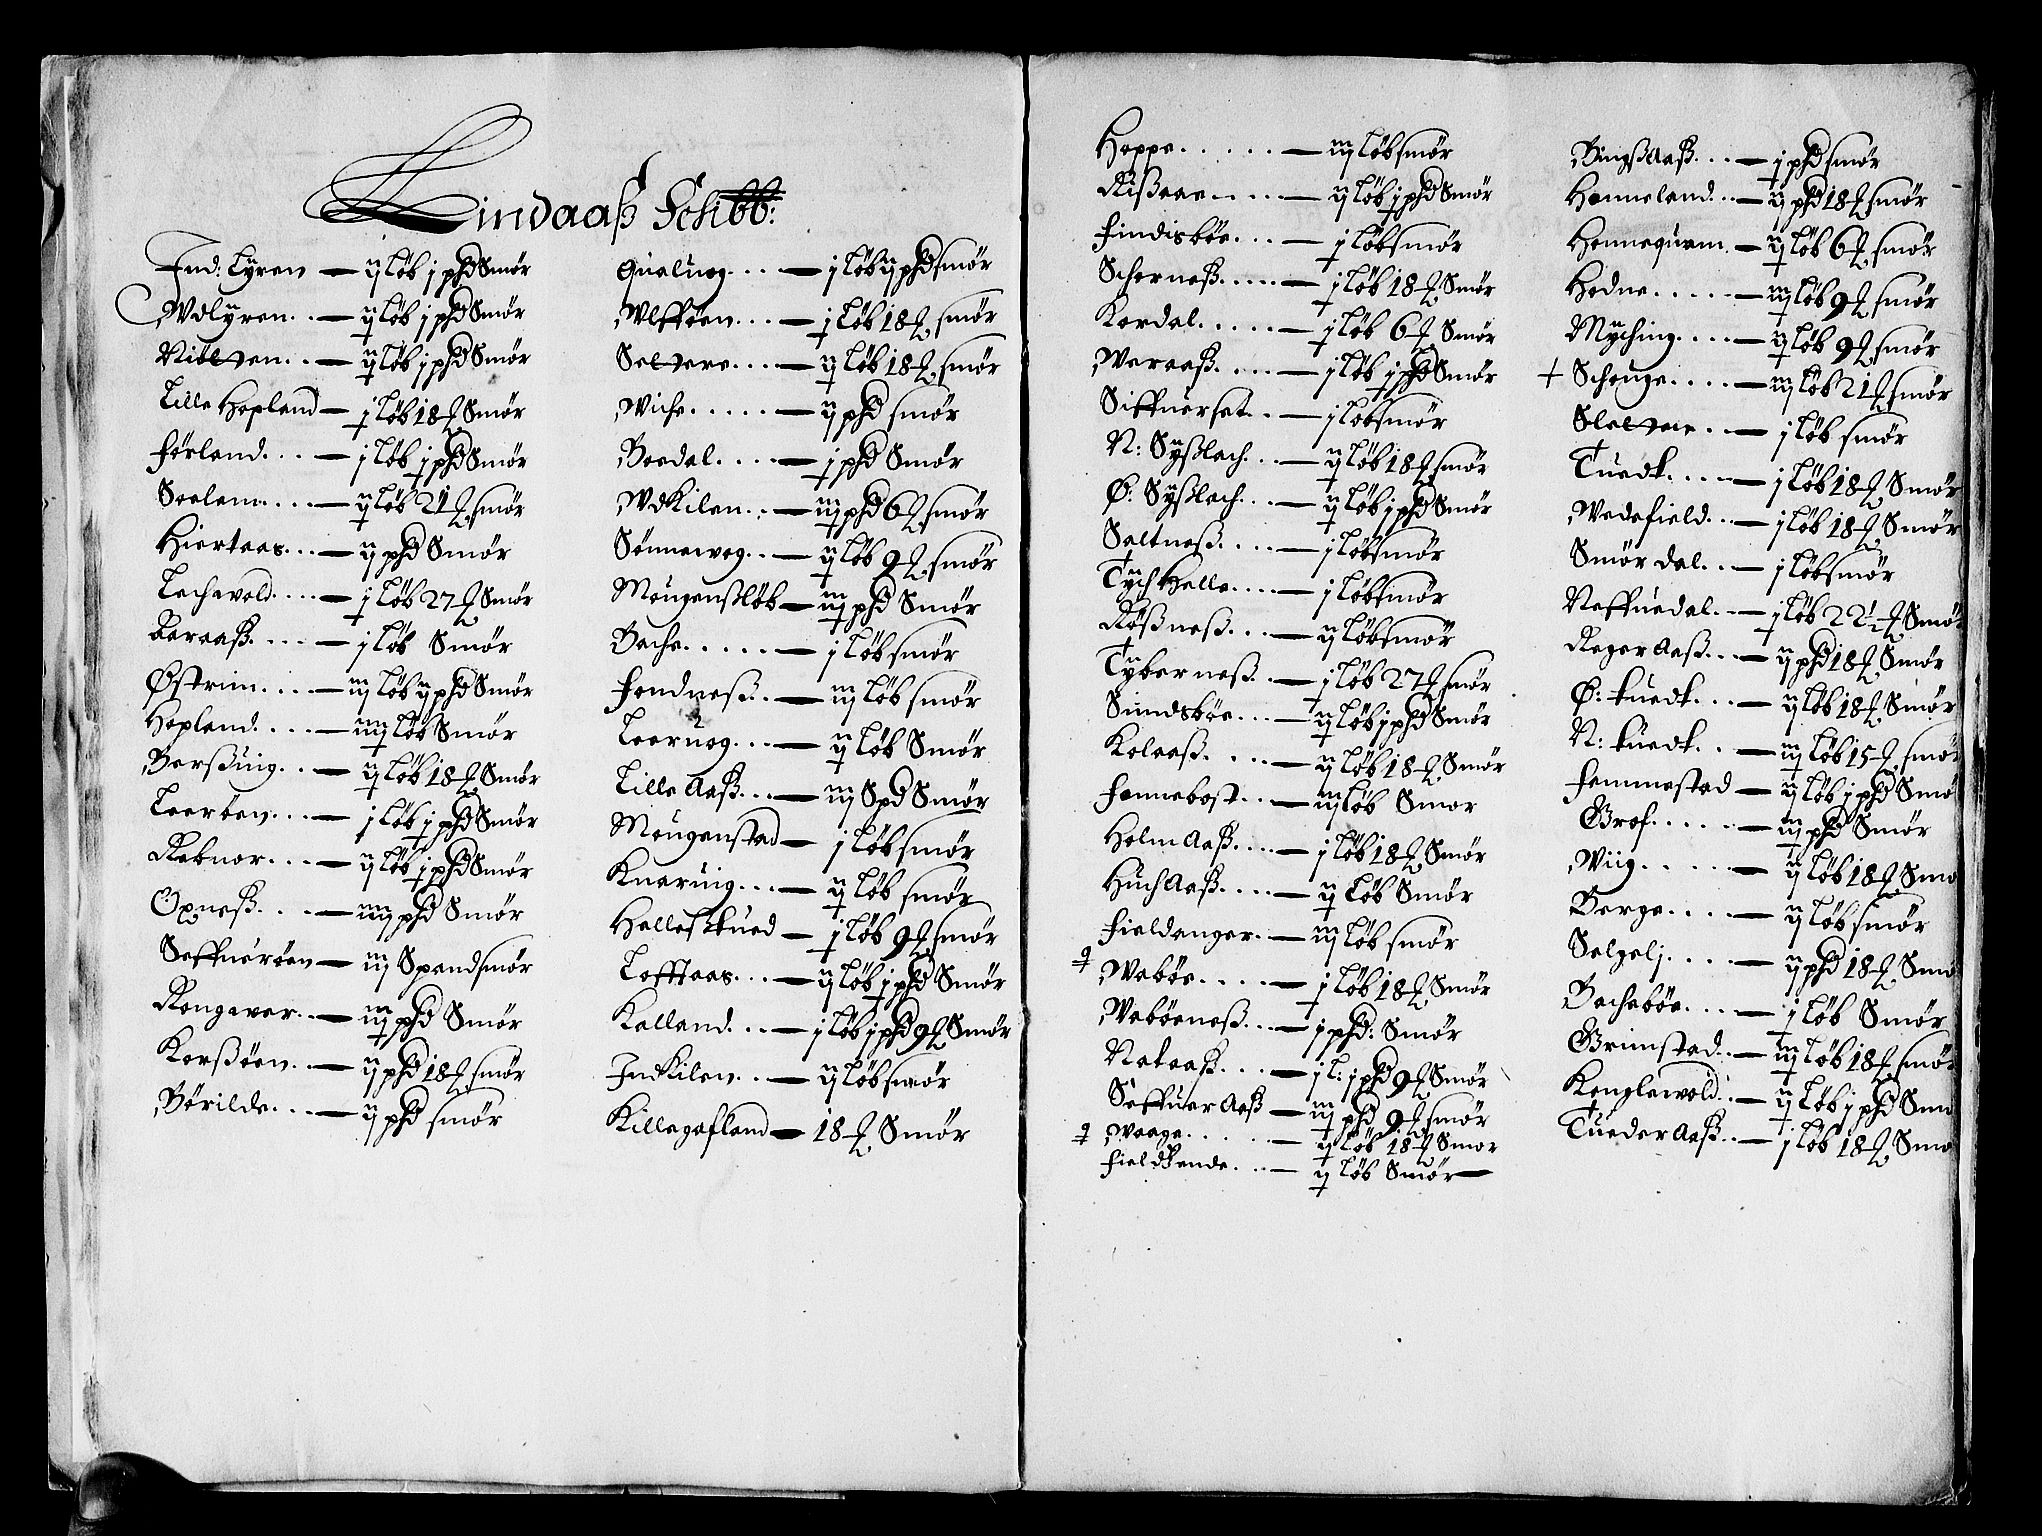 Lindaaß Schibb:
Ind: Lyren — ij løb j phd Smør
Wdlyren — ij løb j phd Smør
Niøltten — ij løb j phd Smør
Lille Hopland — j løb 18 ℔ Smør
Førland — j løb j phd Smør
Seelem — ij løb 21 ℔ smør
Hiertaas — ij phd Smør
Lechevold — j løb 27 ℔ Smør
Raraaß — j løb Smør
Østrim — iij løb ij phd Smør
Hopland — iiij løb Smør
Berßuig — ij løb 18 ℔ Smør
Leerten — j løb j phd Smør
Reknor — ij løb j phd Smør
Oxneß — iiij phd Smør
Seffuerøen — iij Spand smør
Rongewer — iij phd Smør
Korßøen — ij phd 18 ℔ smør
Børilde — ij phd smør
Qualuog — j løb ij phd smør
Vlfføen — j løb 18 ℔ smør
Selttere — ij løb 18 ℔ smør
Wiche — ij phd smør
Boedal — j phd Smør
Vdkilen — iij phd 6 ℔ smør
Sønneweg — ij løb 9 ℔ smør
Mougenßløb — iij phd Smør
Bache — j løb smør
Fondneß — iij løb smør
Leeruog — ij løb Smør
Lille Aaß — iij Spd Smør
Mougenstad — j løb smør
Knaruig — ij løb smør
Hallesktued — j løb 9 ℔ smør
Lofftaas — ij løb j phd Smør
Kalland — j løb j phd 9 ℔ Smør
Indkilen — ij løb smør
Killegafland — 18 ℔ Smør
Hoppe — iij løb smør
Rißaae — ij løb j phd Smør
Findisbøe — j løb smør
Schorneß — j løb 18 ℔ Smør
Kordal — j løb 6 ℔ Smør
Waraaß — j løb j phd Smør
Siffuerset — j løb smør
N: Syßlach — ij løb 18 ℔ smør
Ø: Syßlach — ij løb j phd Smør
Saltneß — j løb smør
Tych Helle — j løb smør
Røßneß — ij løb smør
Tyberneß — j løb 27 ℔ smør
Sundsbøe — ij løb j phd Smør
Kolaaß — ij løb 18 ℔ Smør
Fonnebost — iij løb Smør
Holm Aaß — j løb 18 ℔ Smør
Huch Aaß — ij løb Smør
Fieldanger — iij løb smør
Wabøe — j løb 18 ℔ Smør
Vabøeneß — j phd: Smør
Nataaß — j l: j phd 9 ℔ Smør
Seffuer Aaß — iij phd 9 ℔ smør
Waage — ij løb 18 ℔ Smør
Fieldsende — ij løb Smør
Bingß Aaß — j phd smør
Hanneland — ij phd 18 ℔ smør
Honnequam — ij løb 6 ℔ smør
Hodne — iij løb 9 ℔ smør
Myching — ij løb 9 ℔ smør
Schouge — iij løb 21 ℔ smør
Slettte — j løb smør
Tuedt — j løb 18 ℔ Smør
Wedefield — j løb 18 ℔ Smør
Smør dal — j løb smør
Neffuedal — j løb 22½ ℔ Smør
Reger Aaß — ij phd 18 ℔ Smør
Ø: tuedt — ij løb 18 ℔ Smør
N: tuedt — iij løb 15 ℔ smør
Femmestad — ij løb j phd Smø
Grof — iij phd Smør
Wiig — ij løb 18 ℔ Smø
Berge — ij løb smør
Selgelj — ij phd 18 ℔ Smø
Bachebøe — j løb Smør
Grimstad — iij løb 18 ℔ smør
Konglewold — ij løb j phd Smø
Tueder Aaß — j løb 18 ℔ Smø